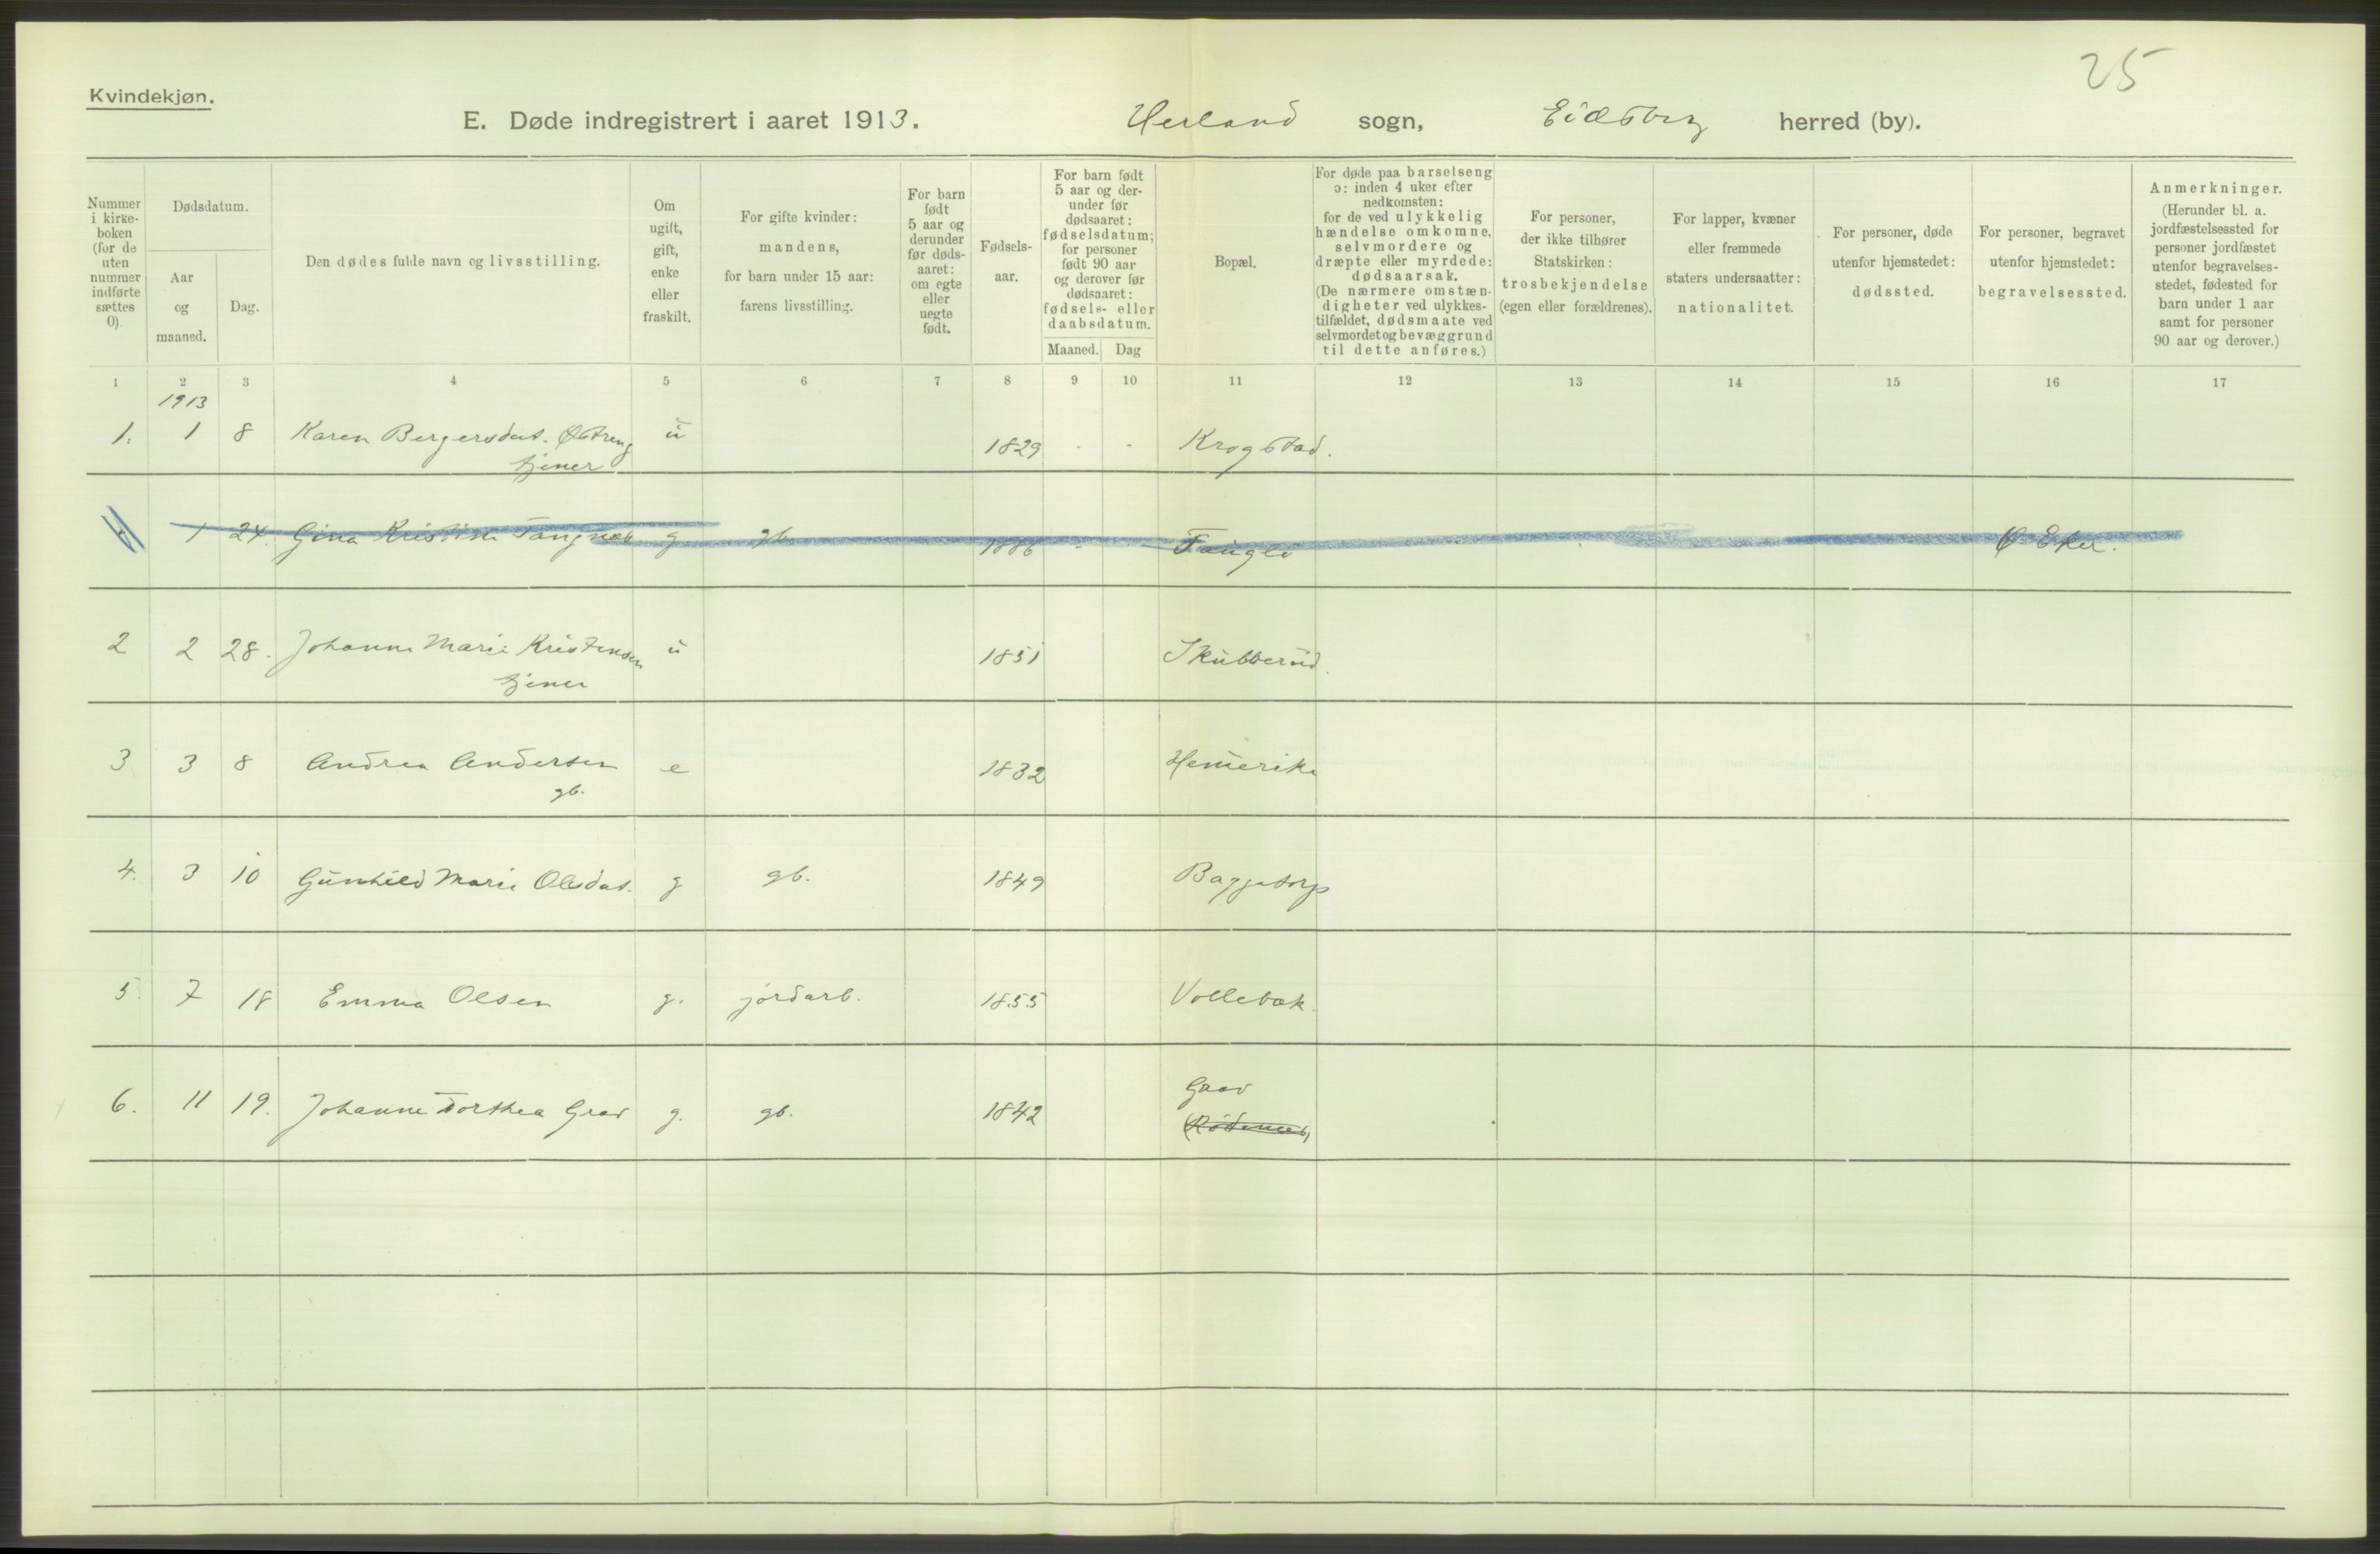 25
Kvindekjøn.
E. Døde indregistrert i aaret 1913. Herland sogn, Eidsberg herred (by).
Nummer i kirke- boken (for de uten nummer indførte sættes 0).
Dødsdatum.
Aar og maaned.
Dag.
Den dødes fulde navn og livsstilling.
Om ugift, gift, enke eller fraskilt.
For gifte kvinder: mandens, for barn under 15 aar: farens livsstilling.
For barn født 5 aar og derunder før døds- aaret: om egte eller uegte født.
Fødsels- aar.
For barn født 5 aar og der- under før dødsaaret: fødselsdatum; for personer født 90 aar og derover før dødsaaret: fødsels- eller daabsdatum.
Maaned. Dag
Bopæl.
For døde paa barselseng ɔ: inden 4 uker efter nedkomsten: for de ved ulykkelig hændelse omkomne, selvmordere og dræpte eller myrdede: dødsaarsak. (De nærmere omstæn- digheter ved ulykkes- tilfældet, dødsmaate ved selvmordet og bevæggrund til dette anføres.)
For personer, der ikke tilhører Statskirken: trosbekjendelse (egen eller forældrenes).
For lapper, kvæner eller fremmede staters undersaatter: nationalitet.
For personer, døde utenfor hjemstedet: dødssted.
For personer, begravet utenfor hjemstedet: begravelsessted.
Anmerkninger. (Herunder bl. a. jordfæstelsessted for personer jordfæstet utenfor begravelses- stedet, fødested for barn under 1 aar samt for personer 90 aar og derover.)
1 2 3 4 5 6 7 8 9 10 11 12 13 14 15 16 17
1913
1. 1 8 Karen Bergersdat. Østreng ü 1829 - - Krogstad.
tjener
1 24. Gina Kristine Tangnes g gb. 1886 - - Ø. Eker.
2 2 28. Johanne Marie Kristensen u 1851 Skubberud.
tjener
3 3 8 Andrea Andersen e 1832 Hemerike
gb.
4. 3 10 Gunhild Marie Olsdat. g gb. 1849 Baggetorp
5. 7 18 Emma Olsen g. jordarb. 1855 Vollebæk.
6. 11 19. Johanne Dorthea Grav g. gb. 1842 Grav
(Rødenes)